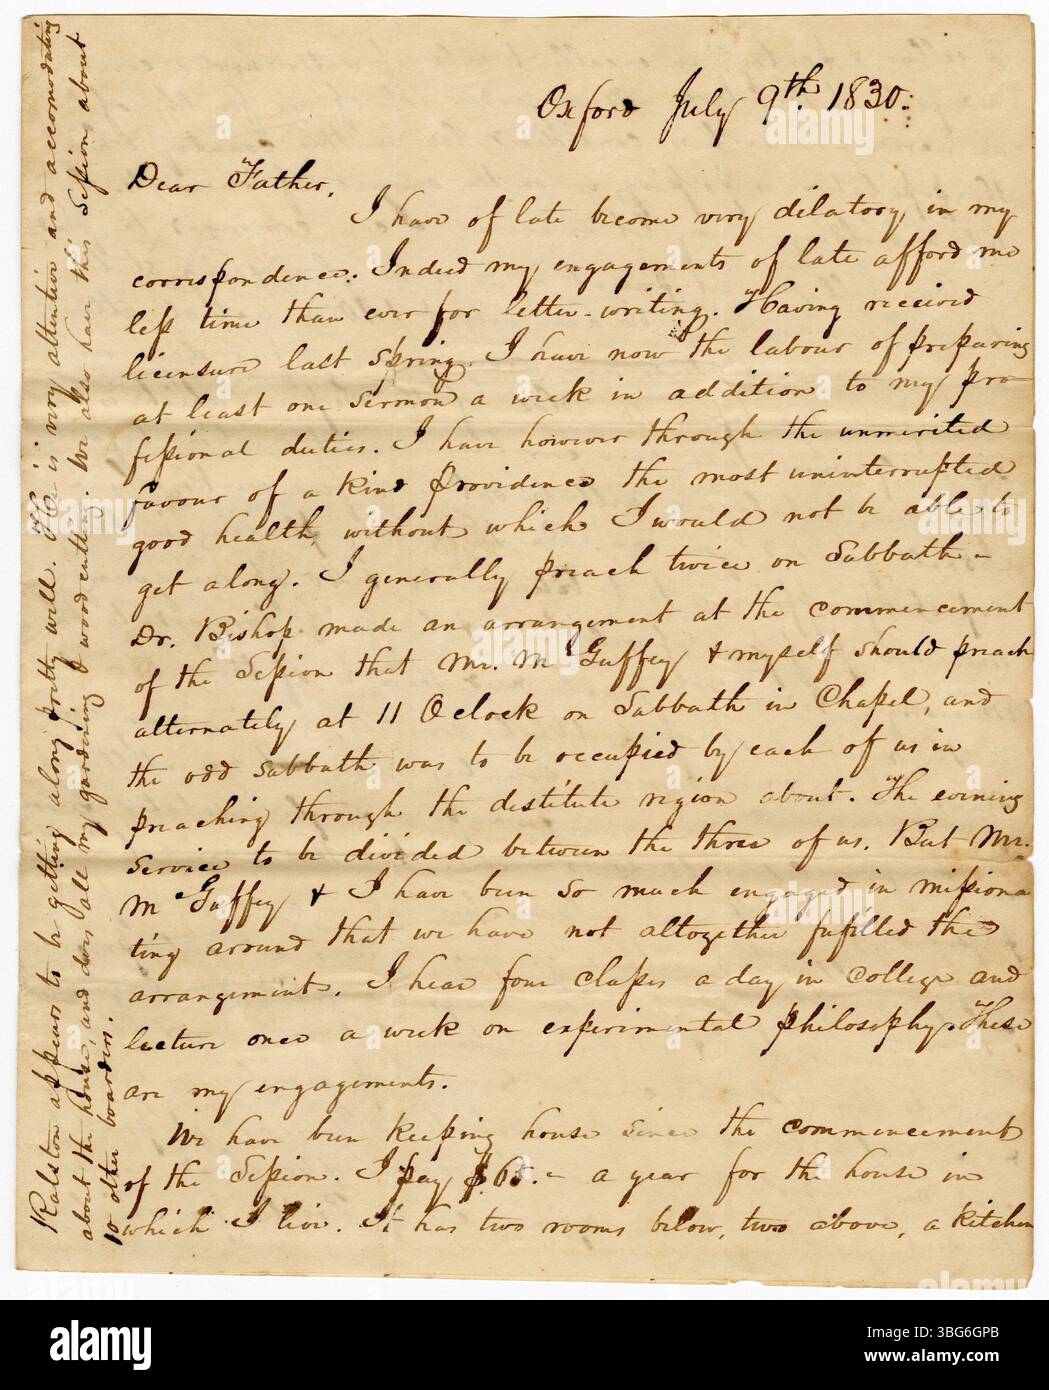 Oxford July 9th. 1830.
Dear Father,
I have of late become very dilatory in my
correspondence. Indeed my engagements of late afford me
less time than ever for letter-writing. Having received
licensure last spring, I have now the labour of preparing
at least one sermon a week in addition to my pro-
fessional duties. I have however through the unmerited
favour of a kind providence the most uninterrupted
good health, without which I would not be able to
get along. I generally preach twice on Sabbath -
Dr. Bishop made an arrangement at the commencement
of the Session that Mr. McGuffey & myself should preach
alternately at 11 Oclock on Sabbath in Chapel, and
the odd Sabbath was to be occupied by each of us in
preaching through the destitute region about. The evening
service to be divided between the three of us. But Mr.
McGuffey & I have been so much engaged in missiona
ting around that we have not altogether fulfilled the
arrangement. I hear four classes a day in College and
lecture once a week on experimental philosophy. These
are my engagements.
We have been keeping house since the commencement
of the Session. I pay $.65.- a year for the house in
which I live. It has two rooms below, two above, a kitchen
Ralston appears to be getting along pretty well. He is very attentive and accomodating
about the house, and does all my gardening & wood cutting. We also have this Session about
10 other boarders.
alamy
Image ID: 3BG6GPB
www.alamy.com